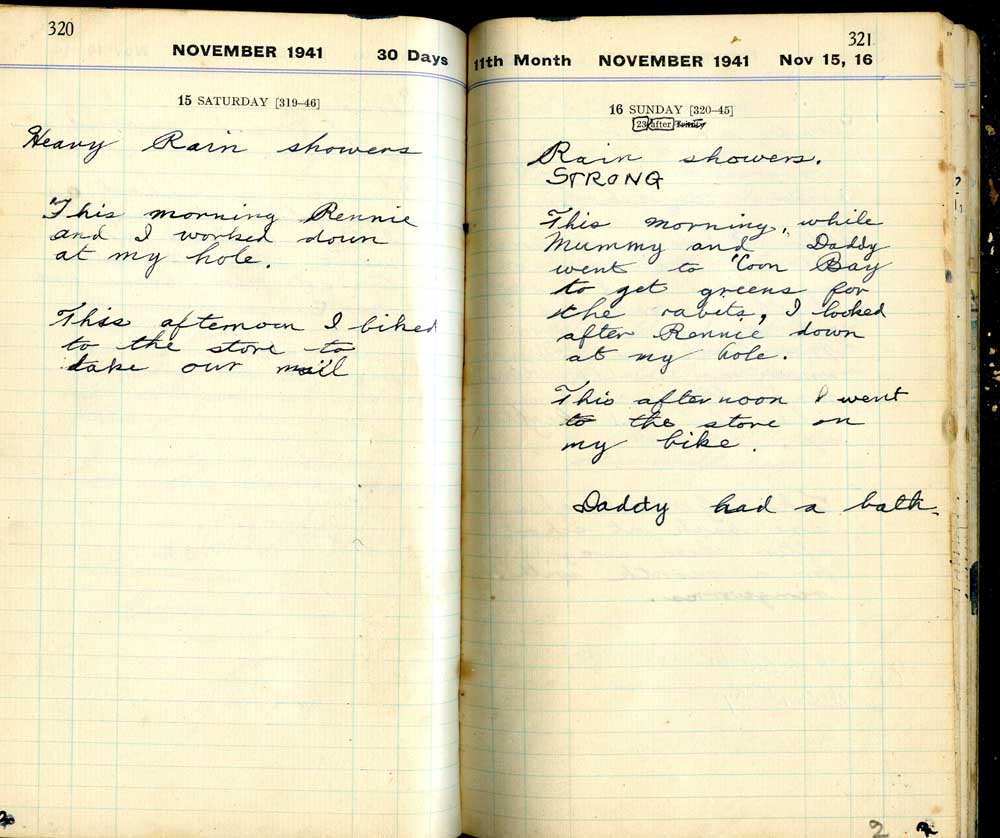 320
NOVEMBER 1941 30 Days
15 SATURDAY [319–46]
Heavy Rain showers
This morning Rennie
and I worked down
at my hole.
This afternoon I biked
to the store to
take our mail
321
11th Month NOVEMBER 1941 Nov 15, 16
16 SUNDAY [320–45]
23 after Trinity
Rain showers.
STRONG
This morning, while
Mummy and Daddy
went to 'Coon Bay
to get greens for
the rabits, I looked
after Rennie down
at my hole.
This afternoon I went
to the store on
my bike.
Daddy had a bath.
2